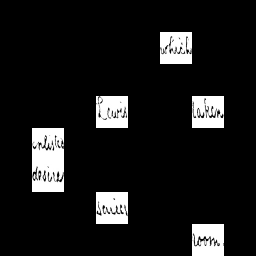 which
Lewis taken
enlisted
desires
series
room.